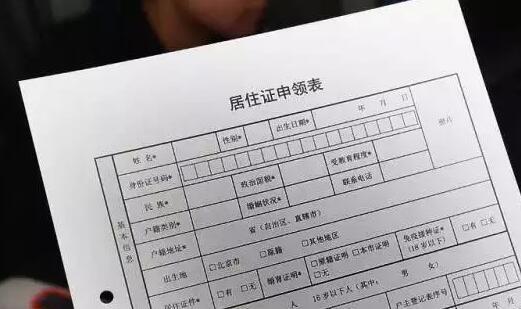 居住证申领表
基本信息
姓 名* 性别* 出生日期* 年 月 日 照片
身份证号码*
民 族* 政治面貌* 受教育程度*
户籍类别* 婚姻状况* 联系电话*
户籍地址* 省（自治区、直辖市）
出生地 □北京市 □原籍 □其他地区
居住证件* □有 □无 婚育证明* □原籍证明 □本市证明 □无 免疫接种证* (18岁以下) □有 □无
人 16岁以下人（其中： 男 女） 户主登记表序号
年 月